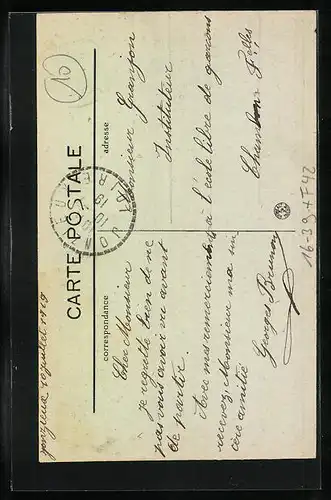 CARTE POSTALE
correspondance
adresse
Cher Monsieur
je regrette bien de ne
pas vous avoir vu avant
de partir.
Avec mes remerciements
recevez, Monsieur ma sin
cère amitié
Georges Brunon
Monsieur Granjon
Instituteur
à l'école libre de garçons
Chambon Felles
Jonzieux 1919
10
16.39